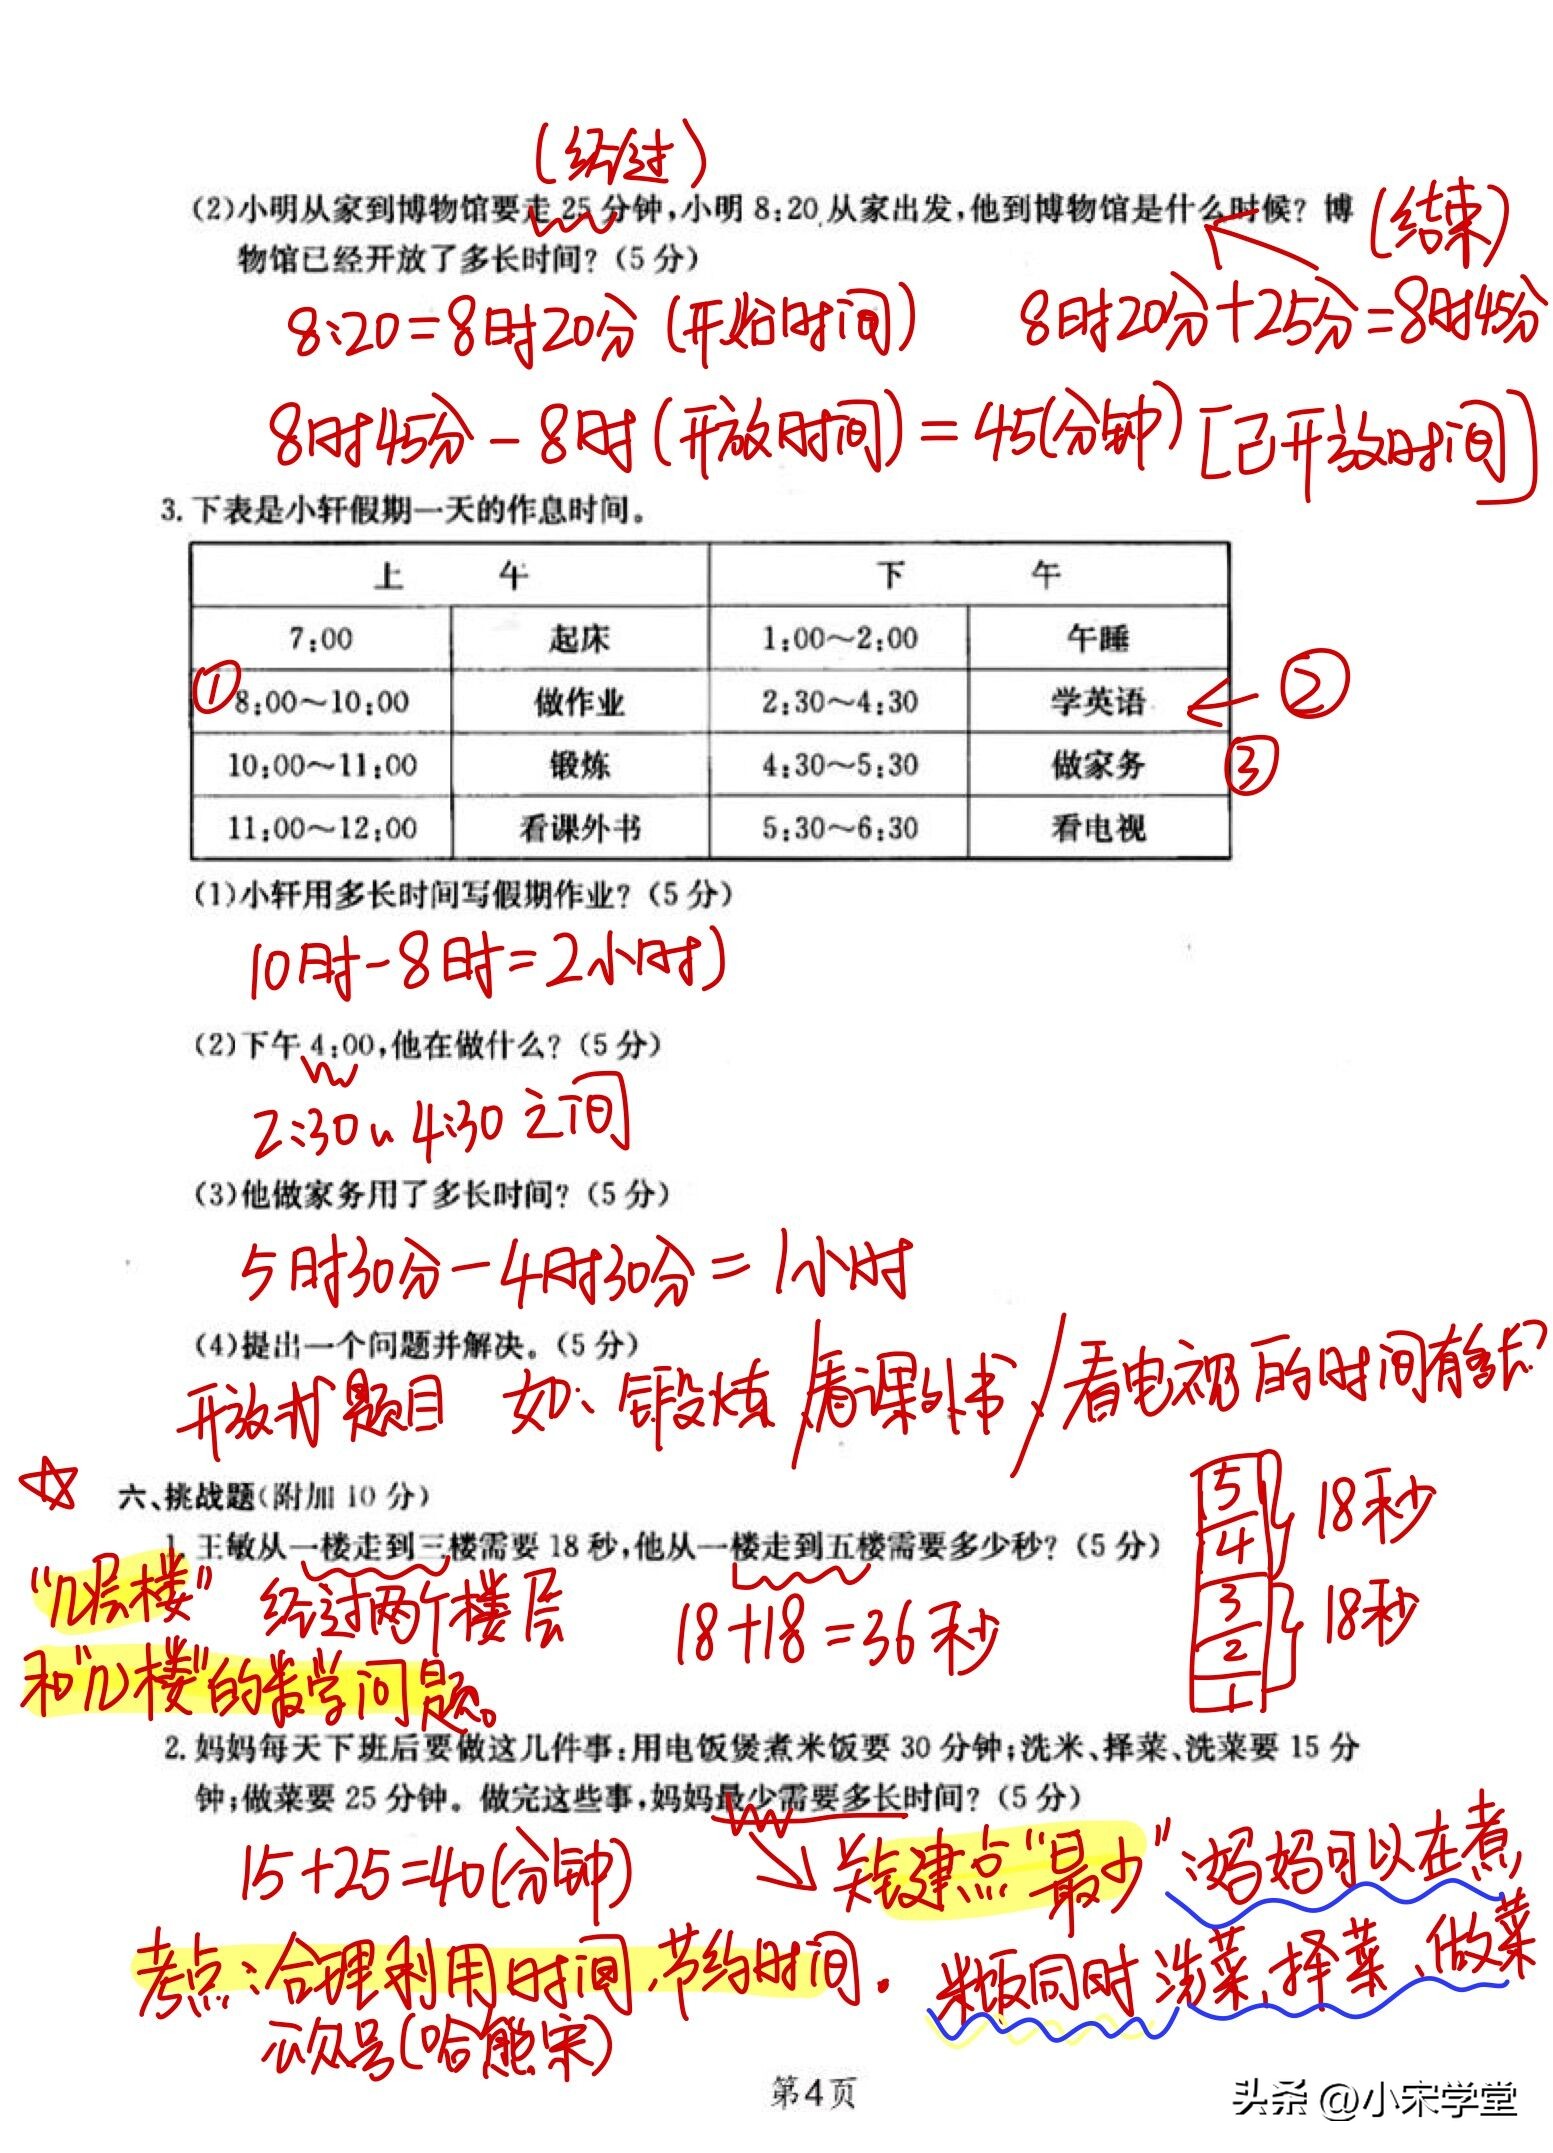 (经过)
(2)小明从家到博物馆要走 25 分钟,小明 8:20 从家出发,他到博物馆是什么时候? 博
(结束)
物馆已经开放了多长时间?(5 分)
8:20=8时20分(开始时间) 8时20分+25分=8时45分
8时45分-8时(开放时间)=45(分钟)[已开放时间]
3. 下表是小轩假期一天的作息时间。
上 午 下 午
7:00 起床 1:00～2:00 午睡
① 8:00～10:00 做作业 2:30～4:30 学英语 ②
10:00～11:00 锻炼 4:30～5:30 做家务 ③
11:00～12:00 看课外书 5:30～6:30 看电视
(1)小轩用多长时间写假期作业?(5 分)
10时-8时=2小时)
(2)下午 4:00,他在做什么?(5 分)
2:30~4:30之间
(3)他做家务用了多长时间?(5 分)
5时30分-4时30分=1小时
(4)提出一个问题并解决。(5 分)
开放式题目 如:锻炼/看课外书/看电视的时间有多长?
☆ 六、挑战题(附加 10 分)
5
4
3
2
1
18秒
18秒
1. 王敏从一楼走到三楼需要 18 秒,他从一楼走到五楼需要多少秒?(5 分)
“几层楼” 经过两个楼层 18+18=36秒
和“几楼”的数学问题。
2. 妈妈每天下班后要做这几件事:用电饭煲煮米饭要 30 分钟;洗米、择菜、洗菜要 15 分
钟;做菜要 25 分钟。做完这些事,妈妈最少需要多长时间?(5 分)
15+25=40(分钟) 关键点“最少”:妈妈可以在煮
考点:合理利用时间,节约时间. 米饭同时洗菜、择菜、做菜
公众号(哈熊宋)
第4页
头条 @小宋学堂